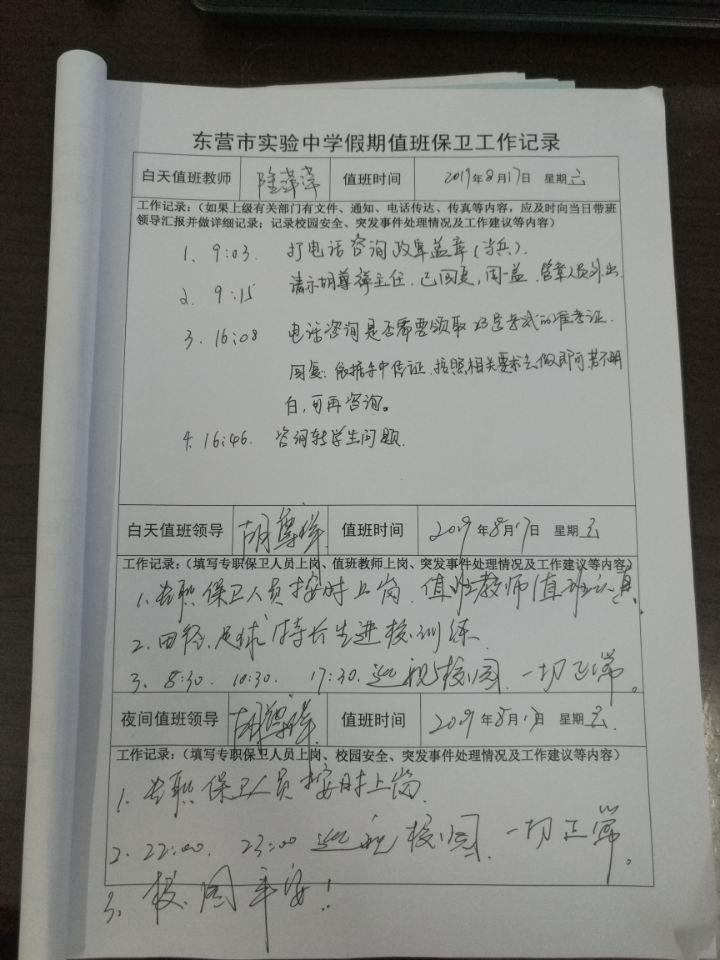 东营市实验中学假期值班保卫工作记录
白天值班教师 萍萍 值班时间 2019年8月17日 星期六
工作记录:(如果上级有关部门有文件、通知、电话传达、传真等内容,应及时向当日带班
领导汇报并做详细记录;记录校园安全、突发事件处理情况及工作建议等内容)
1. 9:03. 打电话咨询改革盖章(当兵).
2. 9:15 请示胡尊祥主任.已回复,周一盖.管章人员外出.
3. 16:08 电话咨询是否需要领取23号考试的准考证.
回复:依据手中传证.按照相关要求去做即可.若不明
白,可再咨询。
4. 16:46. 咨询转学生问题.
白天值班领导 胡尊祥 值班时间 2019年8月17日 星期六
工作记录:(填写专职保卫人员上岗、值班教师上岗、突发事件处理情况及工作建议等内容)
1. 专职保卫人员按时上岗.值班教师值班认真.
2. 田径、足球特长生进校训练.
3. 8:30. 10:30. 17:30.巡视校园.一切正常。
夜间值班领导 胡尊祥 值班时间 2019年8月17日 星期六.
工作记录:(填写专职保卫人员上岗、校园安全、突发事件处理情况及工作建议等内容)
1. 专职保卫人员按时上岗.
2. 22:00. 23:00 巡视校园.一切正常。
3. 校园平安!